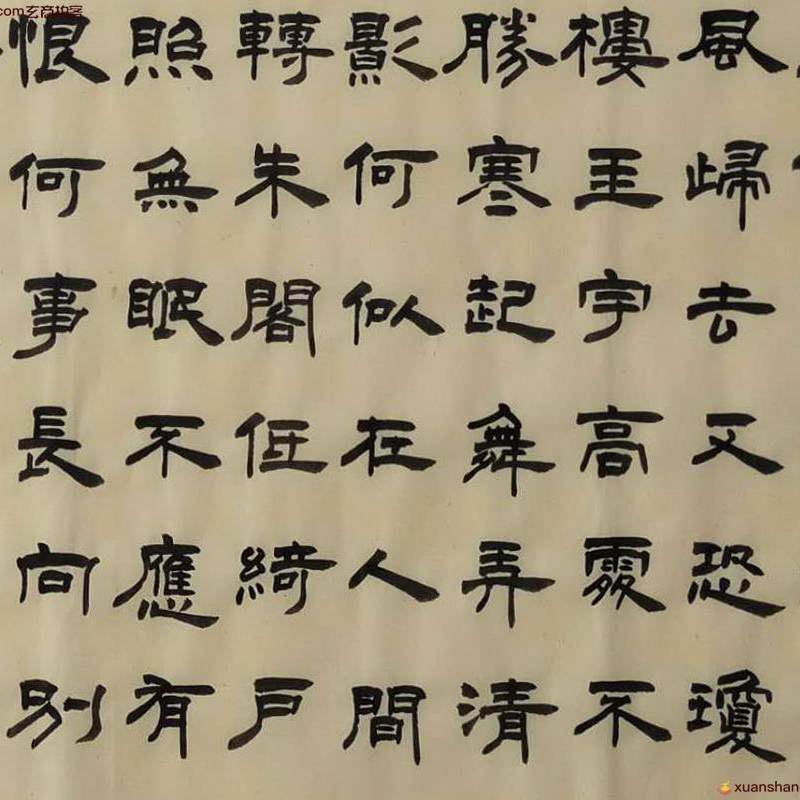 風歸去又恐瓊
樓玉宇高處不
勝寒起舞弄清
影何似在人間
轉朱閣低綺戶
照無眠不應有
恨何事長向別
com玄商拍客
xuanshan